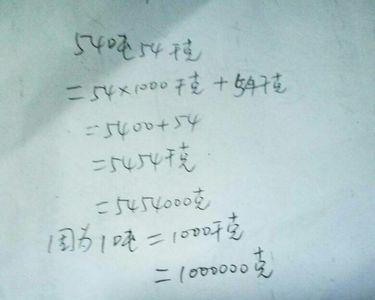 540吨54千克
=54×1000千克+54千克
=5400+54
=5454千克
=5454000克
因为10吨=1000千克
=1000000克